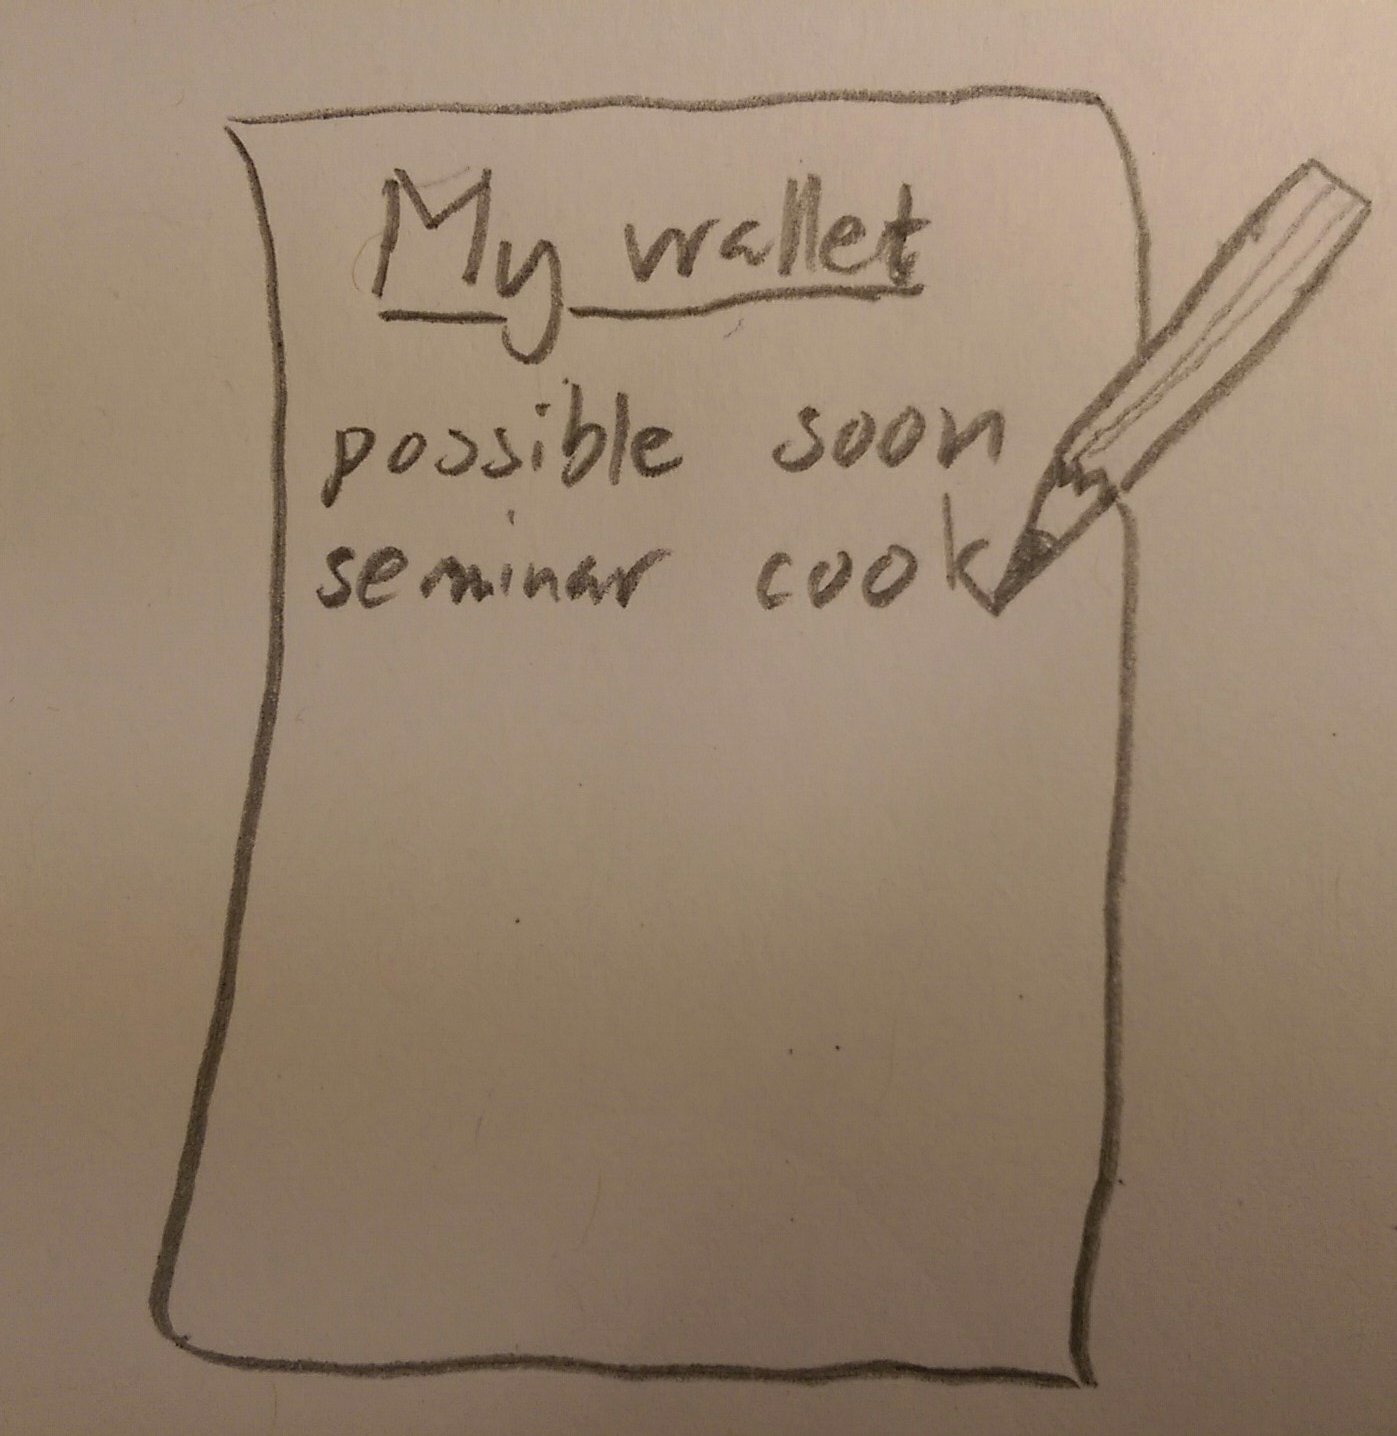 My wallet
possible soon
seminar cook